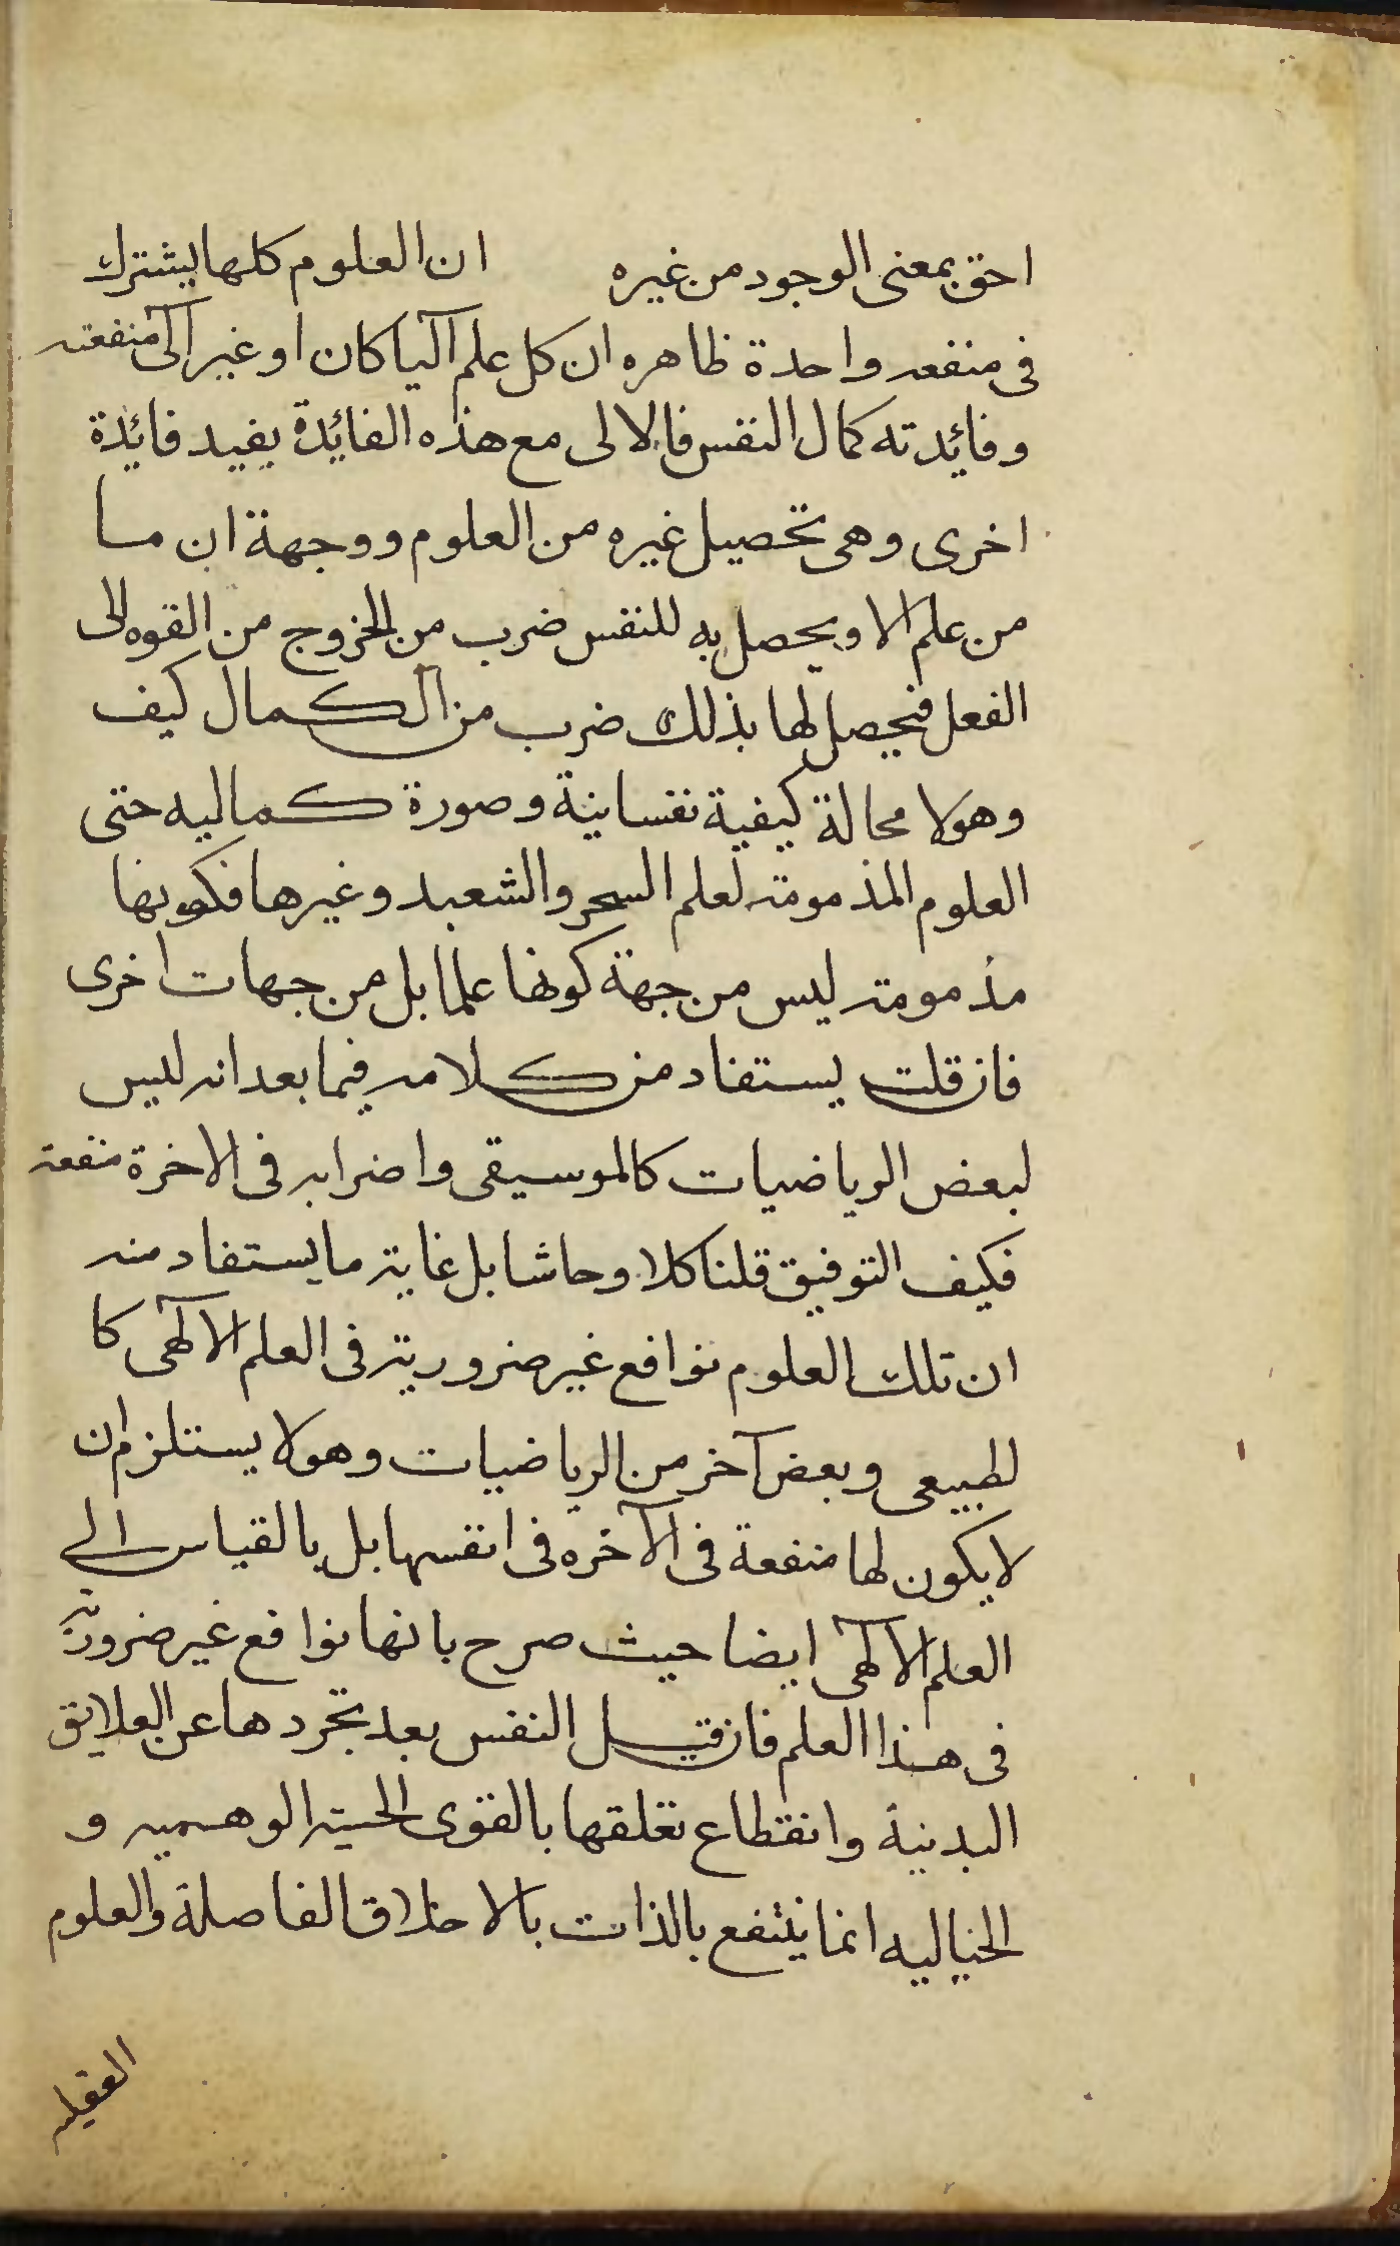 احق بمعنى الوجود من غيره ان العلوم كلها يشترك
فى منفعه واحدة ظاهره ان كل علم آليا كان او غير آلى منفعته
وفائدته كمال النفس فالالى مع هذه الفائدة يفيد فائدة
اخرى وهى تحصيل غيره من العلوم ووجهة ان ما
من علم الا ويحصل به للنفس ضرب من الخروج من القوه الى
الفعل فيحصل لها بذلك ضرب من الكمال كيف
وهو لا محالة كيفية نفسانية وصورة كماليه حتى
العلوم المذمومة لعلم السحر والشعبد وغيرها فكونها
مذمومة ليس من جهة كونها علما بل من جهات اخرى
فان قلت يستفاد من كلامه فيما بعد انه ليس
لبعض الرياضيات كالموسيقى واضرابه فى الاخرة منفعة
فكيف التوفيق قلنا كلا وحاشا بل غاية ما يستفاد منه
ان تلك العلوم نوافع غير ضرورية فى العلم الآلهى كا
لطبيعى وبعض آخر من الرياضيات وهو لا يستلزم ان
لا يكون لها منفعة فى الآخره فى انفسها بل بالقياس الى
العلم الآلهى ايضا حيث صرح بانها نوافع غير ضرورية
فى هذا العلم فان قيل النفس بعد تجردها عن العلايق
البدنية وانقطاع تعلقها بالقوى الحسية الوهميه و
الخياليه انما ينتفع بالذات بالاخلاق الفاصلة والعلوم
العقليه